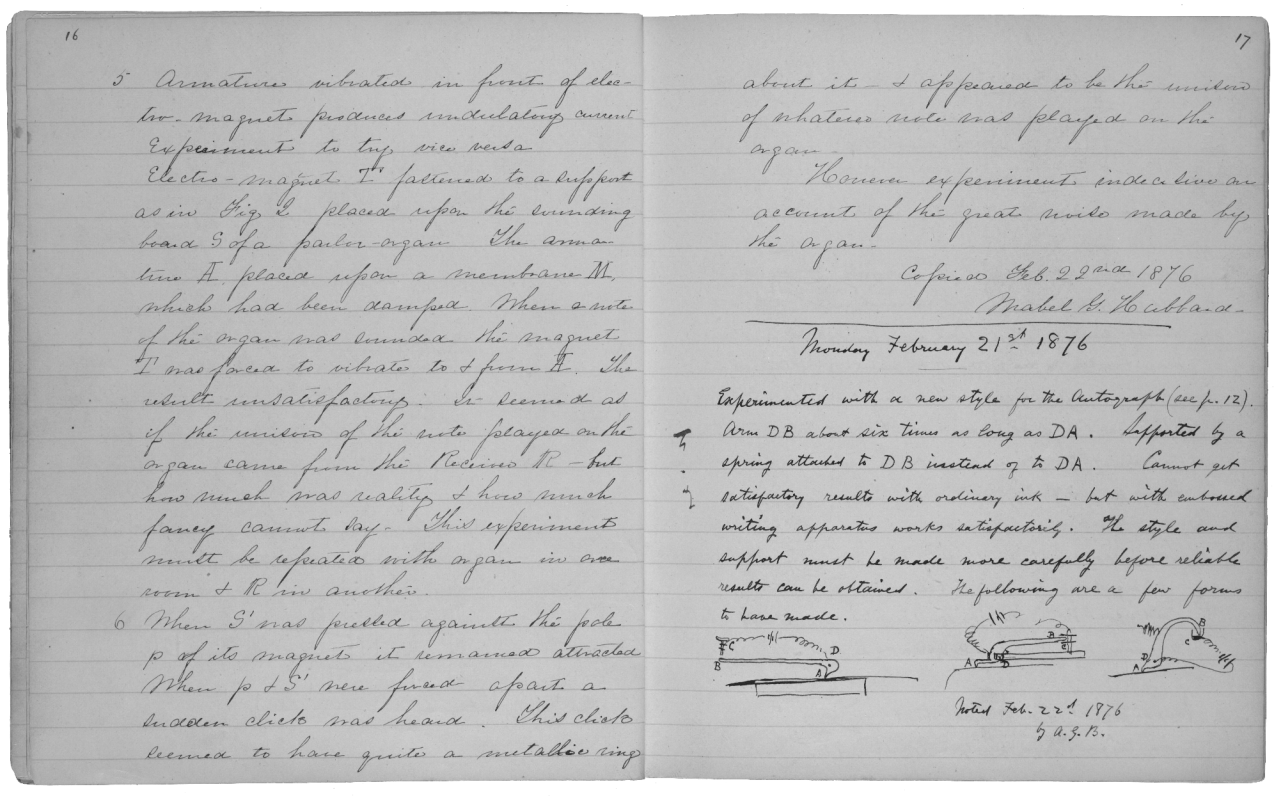 16
5 Armature vibrated in front of elec-
tro-magnet produces undulatory current
Experiment to try vice versa
Electro-magnet T fastened to a support
as in Fig 2 placed upon the sounding
board S of a parlor-organ The arma-
ture A placed upon a membrane M.
which had been damped. When a note
of the organ was sounded the magnet
T was forced to vibrate to & from A. The
result unsatisfactory. It seemed as
if the unison of the note played on the
organ came from the Receiver R – but
how much was reality & how much
fancy cannot say. This experiment
must be repeated with organ in one
room & R in another.
6 When S' was pressed against the pole
p of its magnet it remained attracted
When p & S' were forced apart a
sudden click was heard. This click
seemed to have quite a metallic ring
17
about it – & appeared to be the unison
of whatever note was played on the
organ.
However experiment indecisive on
account of the great noise made by
the organ.
Copied Feb. 22nd 1876
Mabel G. Hubbard.
Monday February 21st 1876
Experimented with a new style for the Autograph (see p. 12).
Arm DB about six times as long as DA. Supported by a
spring attached to DB instead of to DA. Cannot get
satisfactory results with ordinary ink – but with embossed
writing apparatus works satisfactorily. The style and
support must be made more carefully before reliable
results can be obtained. The following are a few forms
to have made.
C D B A
B C A D
B C D A
Noted Feb. 22d 1876
by A.G.B.